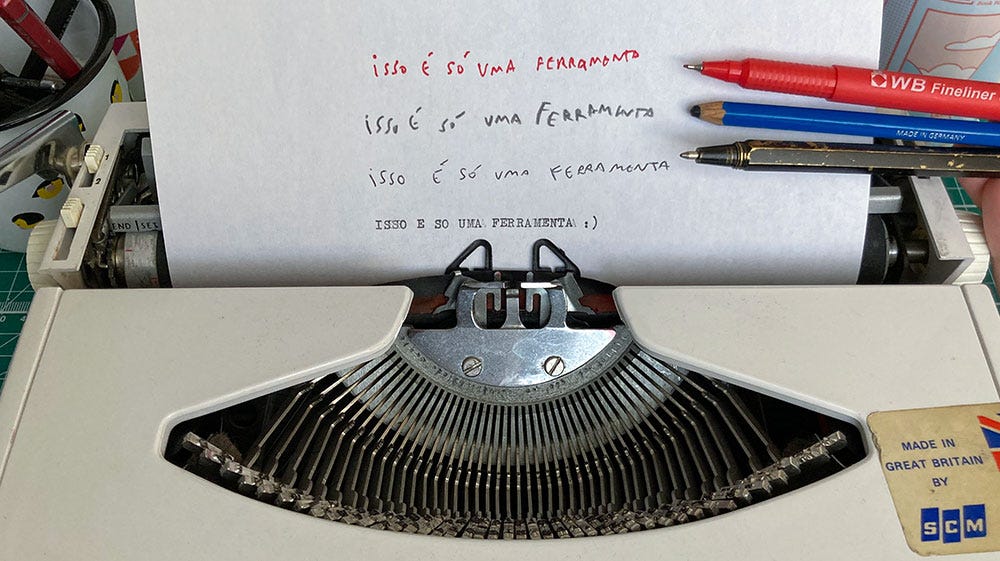 isso É só UMA FERRAMENTA
WB Fineliner
isso É só UMA FERRAMENTA
MADE IN GERMANY
isso É só UMA FERRAMENTA
ISSO E SO UMA FERRAMENTA :)
MADE IN
GREAT BRITAIN
BY
SCM